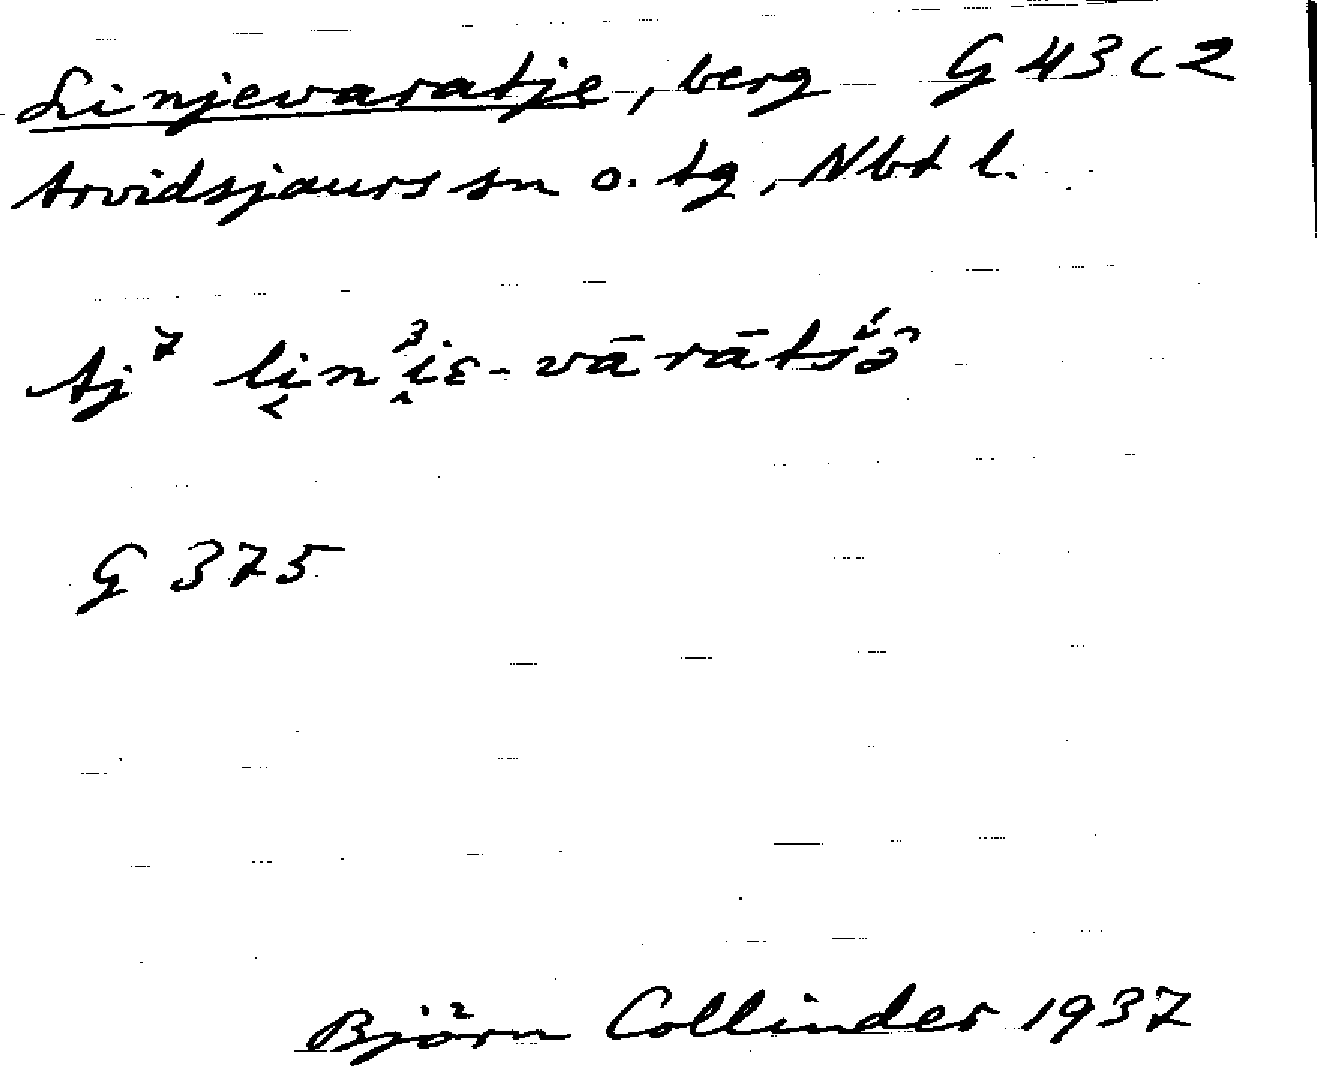 Linjevaratje, berg G 43 c 2
Arvidsjaurs sn o. tg, Nbt l.
Aj⁷
G 375
Björn Collinder 1937